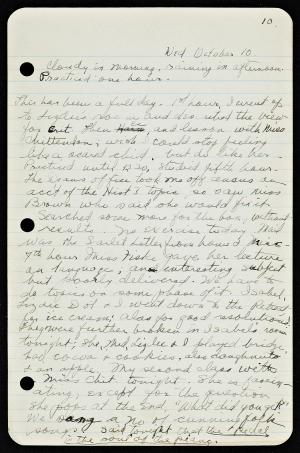 10.
Wed October 10.
Cloudy in morning, raining in afternoon.
Practiced one hour.
This has been a full day. 1st hour, I went up
to
for Art. Then and lesson with Miss
Chittenden; wish I could stop feeling
like a scared child, but do like her.
Practiced until 9:30, studied fifth hour.
The exams office took me off exams on
acc't of the Hist 3 topic so saw Miss
Brown who said she would fix it.
Searched some more for the box, without
results. No exercise today. Mad
was the Scarlet Letter hour
7th hour Miss Fiske gave her lecture
on language, an interesting subject
but poorly delivered. We have to
do topics on some phase of it. Isabel,
I went down to the
for ice cream! Alas for good resolutions!
They were further broken in Isabel's room
tonight; She, Mad, & I played bridge,
had cocoa & cookies, also doughnuts
& an apple. My second class with
Miss Chit. tonight. She is fascin-
ating, except for the question
she pops at the end, "What did you get?"
We sang a no of cunning folk
songs. Said tonight that the pedal
is the soul of the piano.